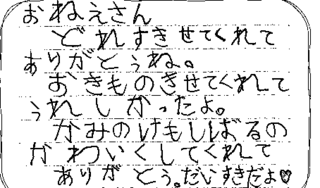 おねえさん
どれすきせてくれて
ありがとぅね。
おきものきせてくれて
ぅれしかったよ。
かみのけもしばるの
かわいくしてくれて
ありがとぅ。だいすきだよ♡